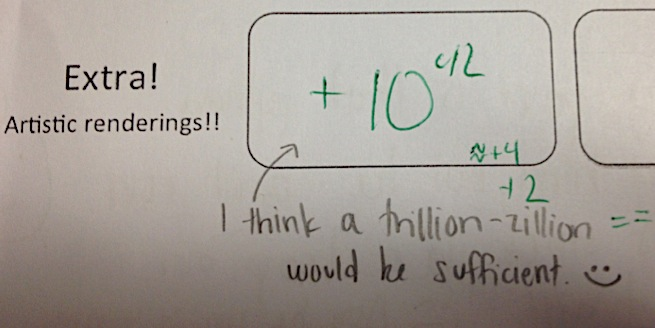 Extra!
Artistic renderings!!
+ 10^42
≈+4
+2
I think a trillion-zillion ==
would be sufficient. :)